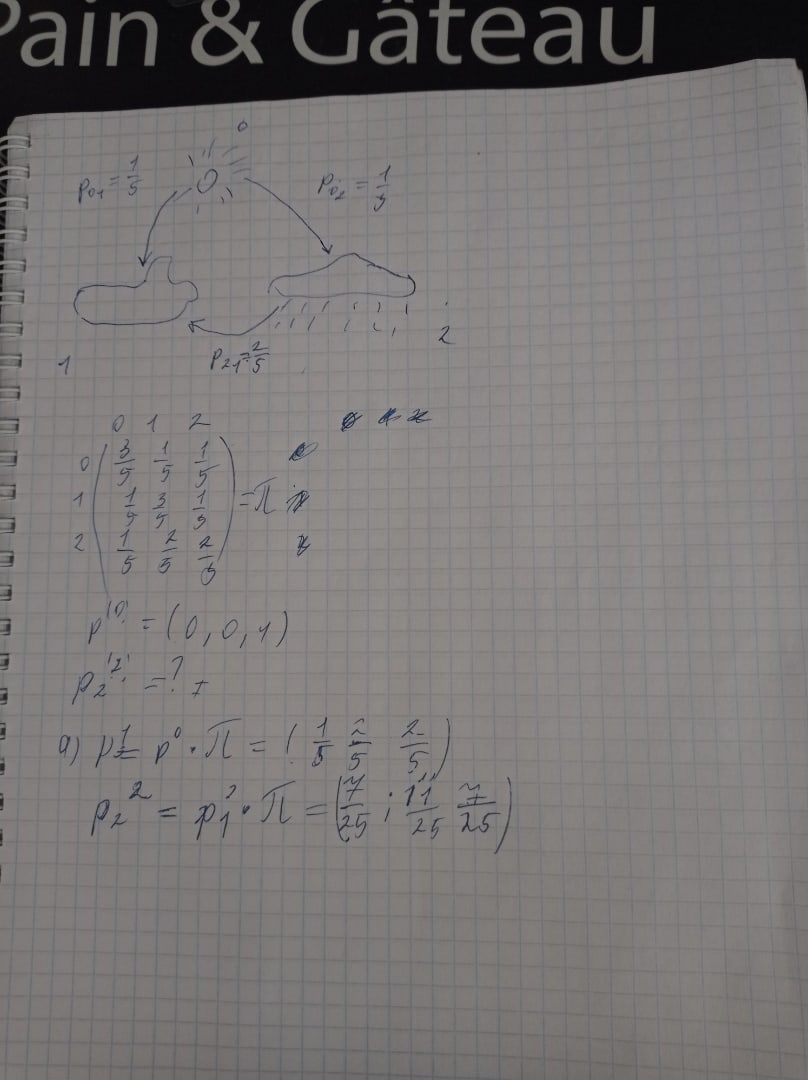 Pain & Gâteau
0
p₀₁ = 1/5
p₀₂ = 1/5
2
p₂₁ = 2/5
1
0 1 2
0 ( 3/5 1/5 1/5 )
1 ( 1/5 3/5 1/5 ) = π
2 ( 1/5 2/5 2/5 )
p⁽⁰⁾ = (0, 0, 1)
p₂⁽²⁾ = ?
a) p¹ = p⁰ · π = ( 1/5 2/5 2/5 )
p₂² = p₁ · π = ( 7/25 ; 11/25 7/25 )